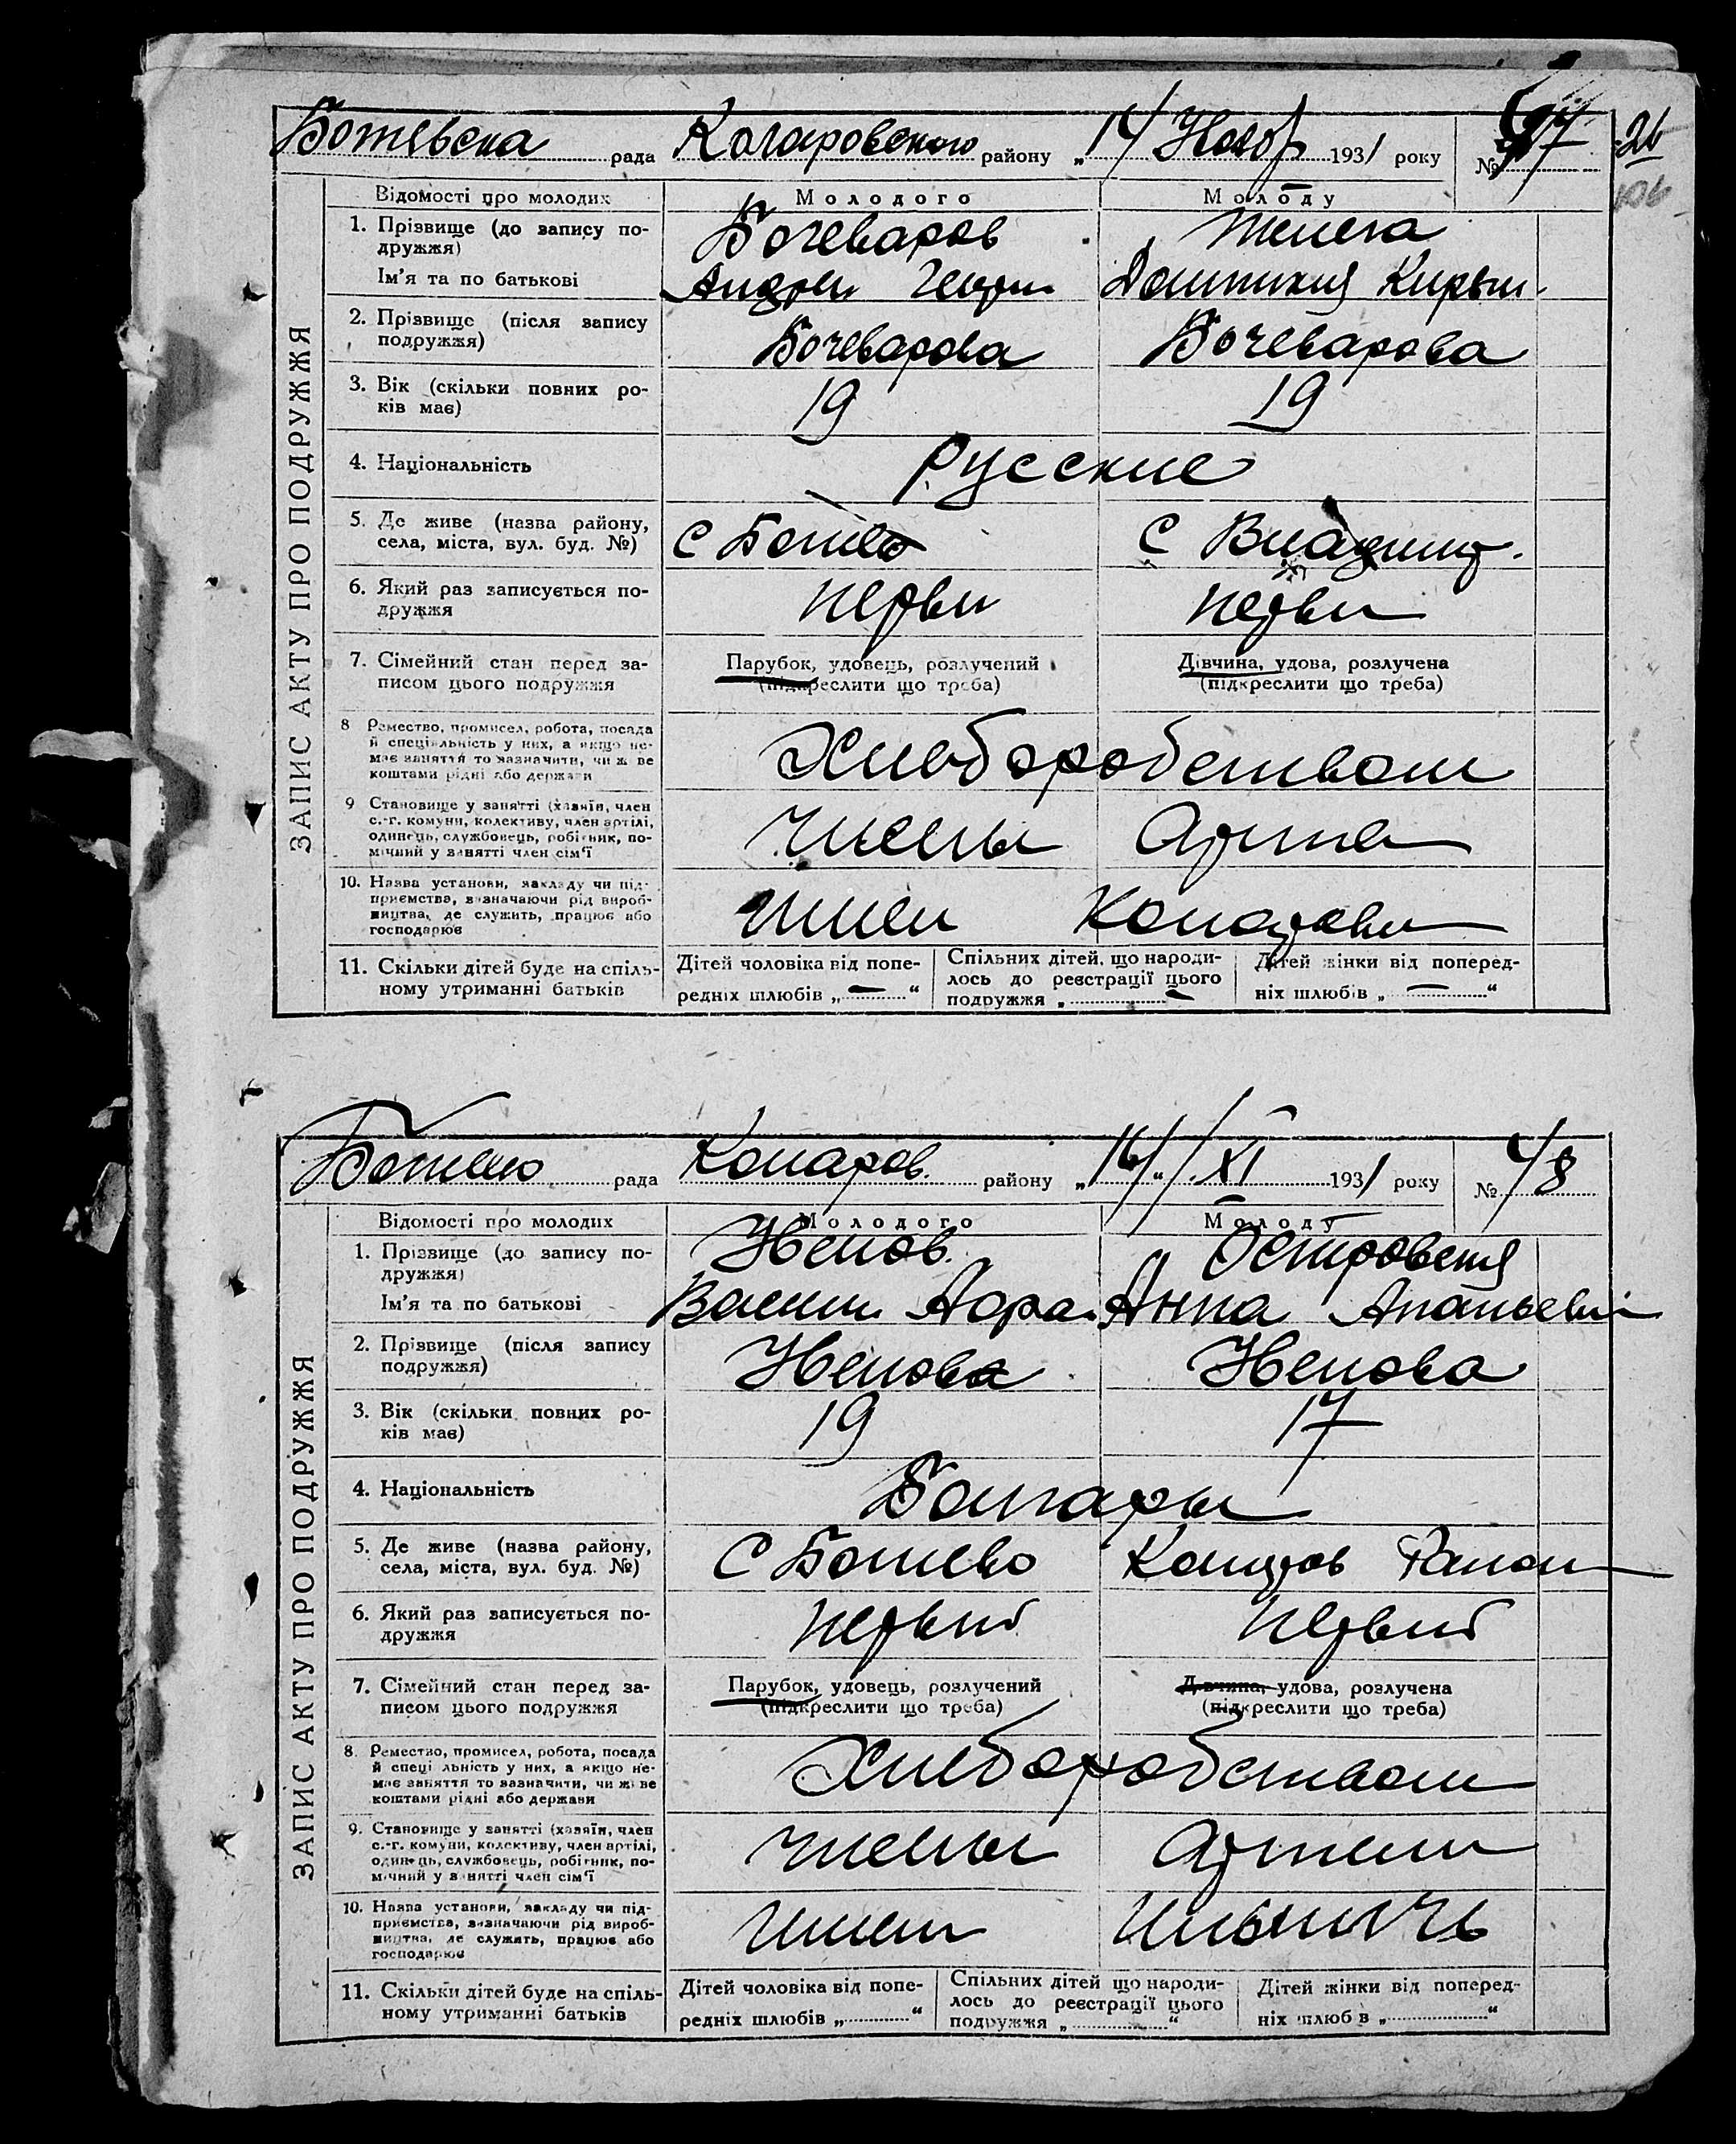 Ботевска рада Коларовского району „14/ Ноябр 1931 року № 47 26
Відомості про молодих Молодого Молоду
ЗАПИС АКТУ ПРО ПОДРУЖЖЯ
1. Прізвище (до запису по- Бочеваров
дружжя)
Ім'я та по батькові Андрей
2. Прізвище (після запису
подружжя) Бочеварова Бочеварова
3. Вік (скільки повних ро- 19 19
ків має)
4. Національність Русские
5. Де живе (назва району,
села, міста, вул. буд. №) С Ботево С
6. Який раз записується по- перви перви
дружжя
7. Сімейний стан перед за- Парубок, удовець, розлучений Дівчина, удова, розлучена
писом цього подружжя (підкреслити що треба) (підкреслити що треба)
8 Ремество, промисел, робота, посада
й спеціяльність у них, а якщо не-
має заняття то зазначити, чиїми Хлеборобством
коштами рідні або держави
9 Становище у занятті (хазяїн, член
с.-г. комуни, колективу, член артілі,
одинець, службовець, робітник, по- члены
мічний у занятті член сім'ї
10. Назва установи, закладу чи під-
приємства, зазначаючи рід вироб-
ництва, де служить, працює або
господарює
11. Скільки дітей буде на спіль- Дітей чоловіка від попе- Спільних дітей, що народи- Дітей жінки від поперед-
ному утриманні батьків редніх шлюбів „ — “ лось до реєстрації цього ніх шлюбів „ — “
подружжя „ —
Ботево рада Коларов. району „16/“/XI 1931 року № 48
Відомості про молодих Молодого Молоду
ЗАПИС АКТУ ПРО ПОДРУЖЖЯ
1. Прізвище (до запису по- Ненов.
дружжя)
Ім'я та по батькові Анна Ананьевн
2. Прізвище (після запису
подружжя) Ненова Ненова
3. Вік (скільки повних ро- 19 17
ків має)
4. Національність Болгары
5. Де живе (назва району,
села, міста, вул. буд. №) С Ботево Коларов Район
6. Який раз записується по- первый первый
дружжя
7. Сімейний стан перед за- Парубок, удовець, розлучений Дівчина, удова, розлучена
писом цього подружжя (підкреслити що треба) (підкреслити що треба)
8. Ремество, промисел, робота, посада
й спеціяльність у них, а якщо не-
має заняття то зазначити, чиїми Хлеборобством
коштами рідні або держави
9. Становище у занятті (хазяїн, член
с.-г. комуни, колективу, член артілі,
одинець, службовець, робітник, по- члены Артели
мічний у занятті член сім'ї
10. Назва установи, закладу чи під-
приємства, зазначаючи рід вироб-
ництва, де служить, працює або Ильичь
господарює
11. Скільки дітей буде на спіль- Дітей чоловіка від попе- Спільних дітей що народи- Дітей жінки від поперед-
ному утриманні батьків редніх шлюбів „ “ лось до реєстрації цього ніх шлюбів „ “
подружжя „ “